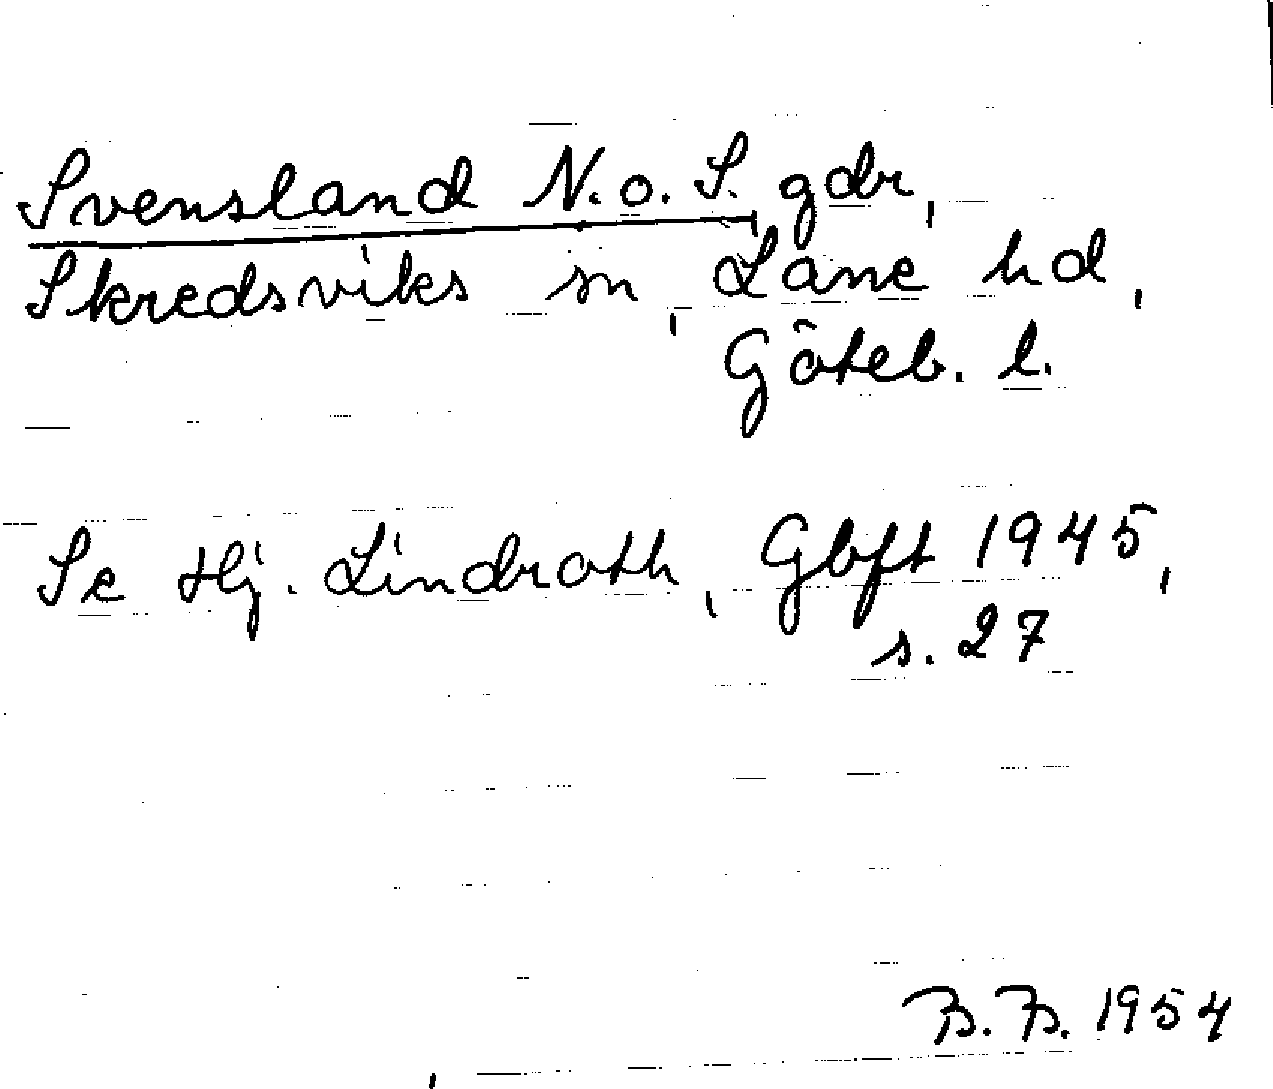 Svensland N. o. S. gdr,
Skredsviks sn, Lane hd,
Göteb. l.
Se Hj. Lindroth, Gbft 1945,
s. 27
B. B. 1954